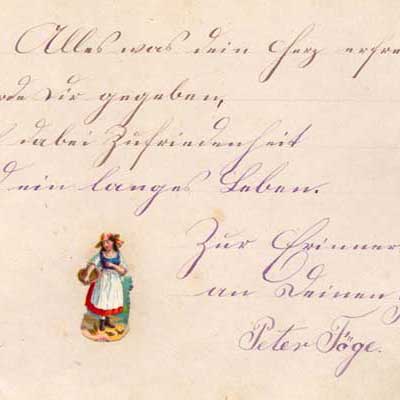 Alles was dein Herz erfre
rde Dir gegeben,
dabei Zufriedenheit
d ein langes Leben.
Zur Erinner
an Deinen
Peter Föge.